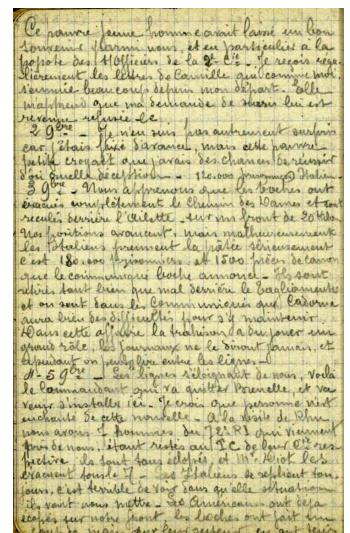 Ce pauvre jeune homme avait laissé un bon
souvenir parmi nous, et en particulier à la
popote des Officiers de la 2e Cie. Je reçois régu-
lièrement les lettres de Camille qui comme moi
s'ennuie beaucoup depuis mon départ. Elle
m'apprend que ma demande de sursis lui est
revenue refusée le
2 9bre - Je n'en suis pas autrement surpris
car j'étais fixé d'avance, mais cette pauvre
petite croyait que j'avais des chances de réussir
d'où quelle déception - 120.000 prisonniers Italiens
3 9bre - Nous apprenons que les boches ont
évacué complètement le Chemin des Dames et sont
reculés derrière l'Ailette sur un front de 20 Kilom
Nos positions avancent, mais malheureusement
les Italiens prennent la pâtée sérieusement
c'est 180.000 prisonniers et 1500 pièces de canon
que le communiqué boche annonce - Ils sont
retirés tant bien que mal derrière le Tagliamento
et on sent dans les Communiqués que Cadorna
aura bien des difficultés pour s'y maintenir
Dans cette affaire la trahison a du jouer un
grand rôle, les journaux ne le diront jamais, et
cependant on peut lire entre les lignes -
4-5 9bre - Les lignes s'éloignant de nous, voilà
le Commandant qui va quitter et va
venir s'installer ici. Je crois que personne n'est
enchanté de cette nouvelle - A la visite de
nous avons 7 hommes du RI qui viennent
près de nous, étant restés au PC de leur Cie res-
pective, ils sont tous éclopés, et Mr les
évacuent tous le 7 - Les Italiens se replient tou-
jours, c'est terrible de voir dans quelle situation
ils vont nous mettre - Les Américains ont déjà
écopé sur notre front, les boches ont fait un